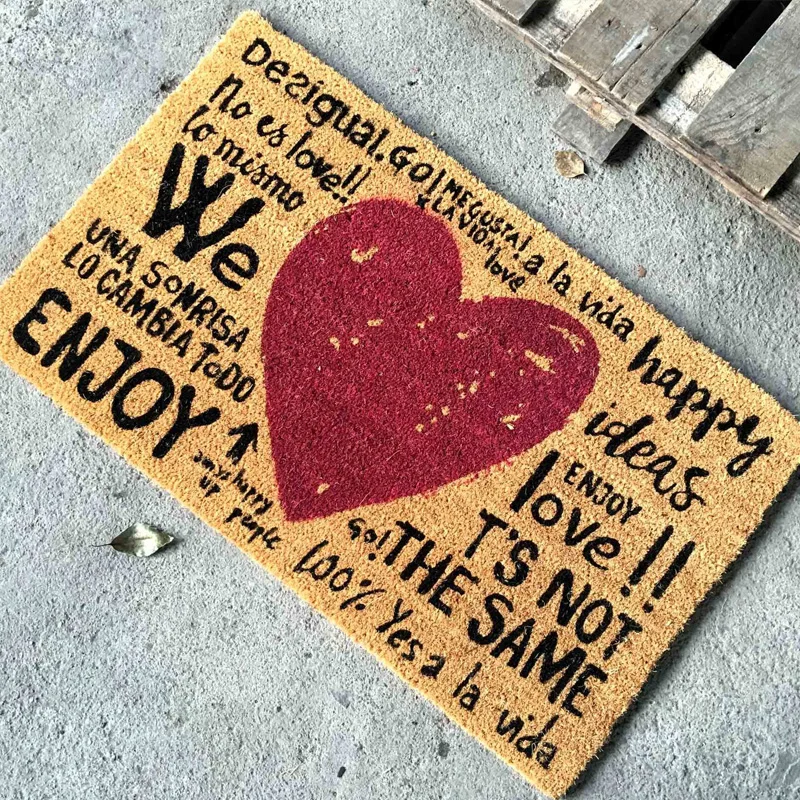 Desigual. GO! ME GUSTA! a la vida happy
No es love!! X LA VIDA!
lo mismo
love
We
UNA SONRISA
LO CAMBIA TODO
ENJOY
up people
ideas
ENJOY
love!!
T'S NOT
Go! THE SAME
100% Yes a la vida